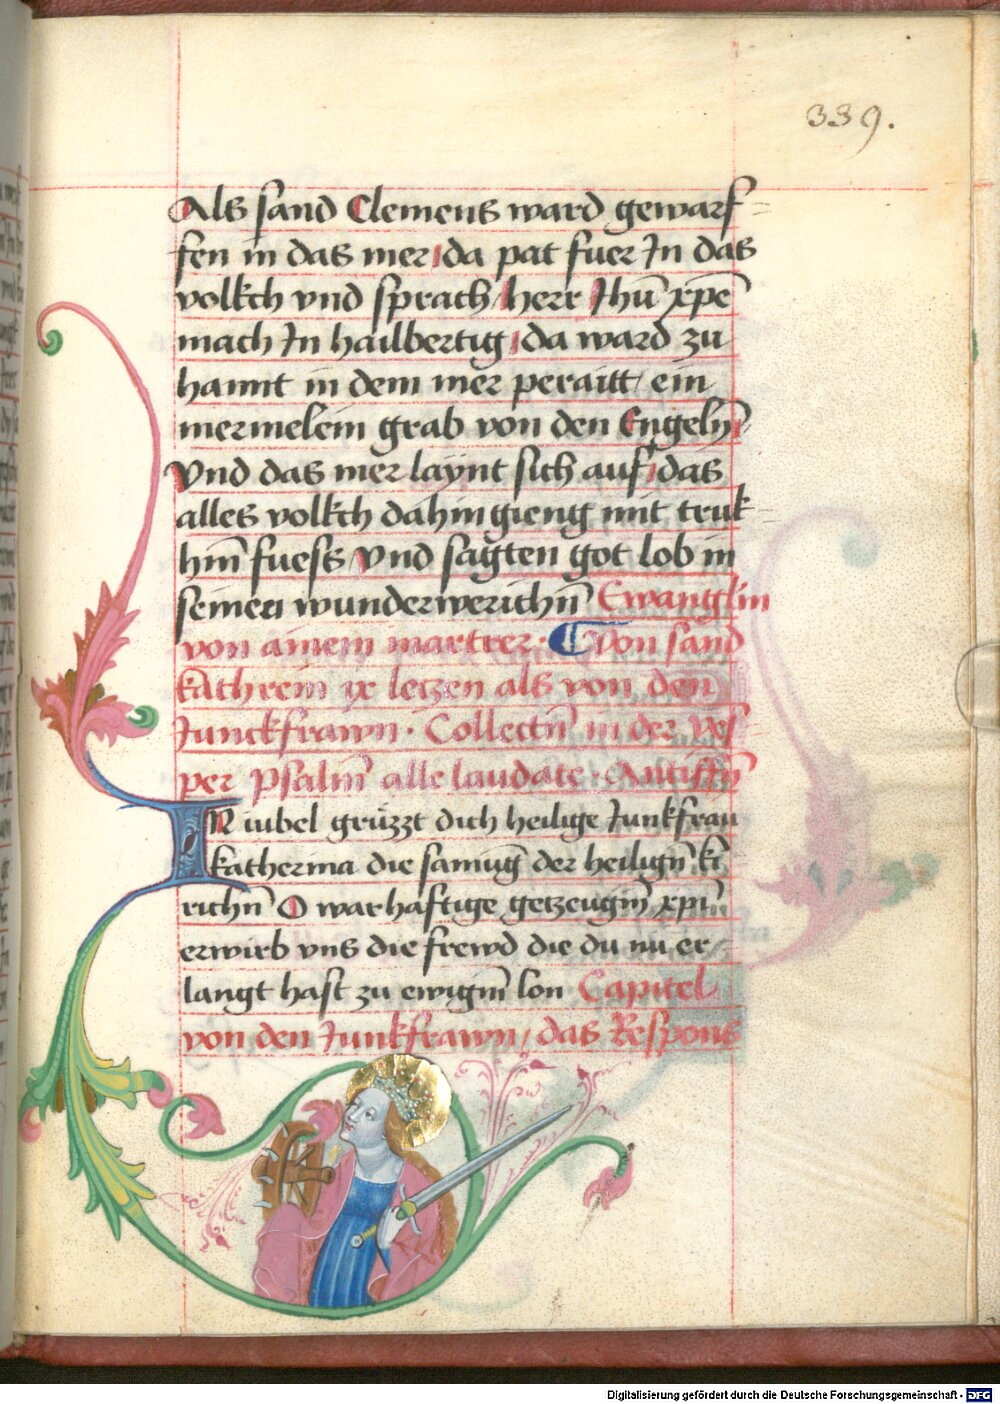 339.
Als sand Clemens ward gewarf-
fen in das mer, da pat fuer In das
volkch vnd sprach, herr Jhū xp̄e
mach In hailbertig, da ward zu
hannt in dem mer peraitt, ein
mermelein grab von den Engelñ
Vnd das mer laynt sich auf, das
alles volkch dahin gieng mit truk-
hm̄ fuess Vnd sagten got lob in
seinen wunderwerichñ Ewanglin
von ainem martrer. ¶ Von sand
kathrein ix letzen als von den
Junckfrawn. Collectn̄ in der ves
per psalm̄ alle laudate. Antiffn̄
IN iubel grüzzt dich heilige Junkfrau
katherina die samuḡ der heilign̄ ki
richn̄ O warhaftige getzeugin̄ xp̄i
erwirb vns die frewd die du nu er-
langt hast zu ewigm̄ lon Capitel
von den Junkfrawn, das Respons
Digitalisierung gefördert durch die Deutsche Forschungsgemeinschaft - DFG